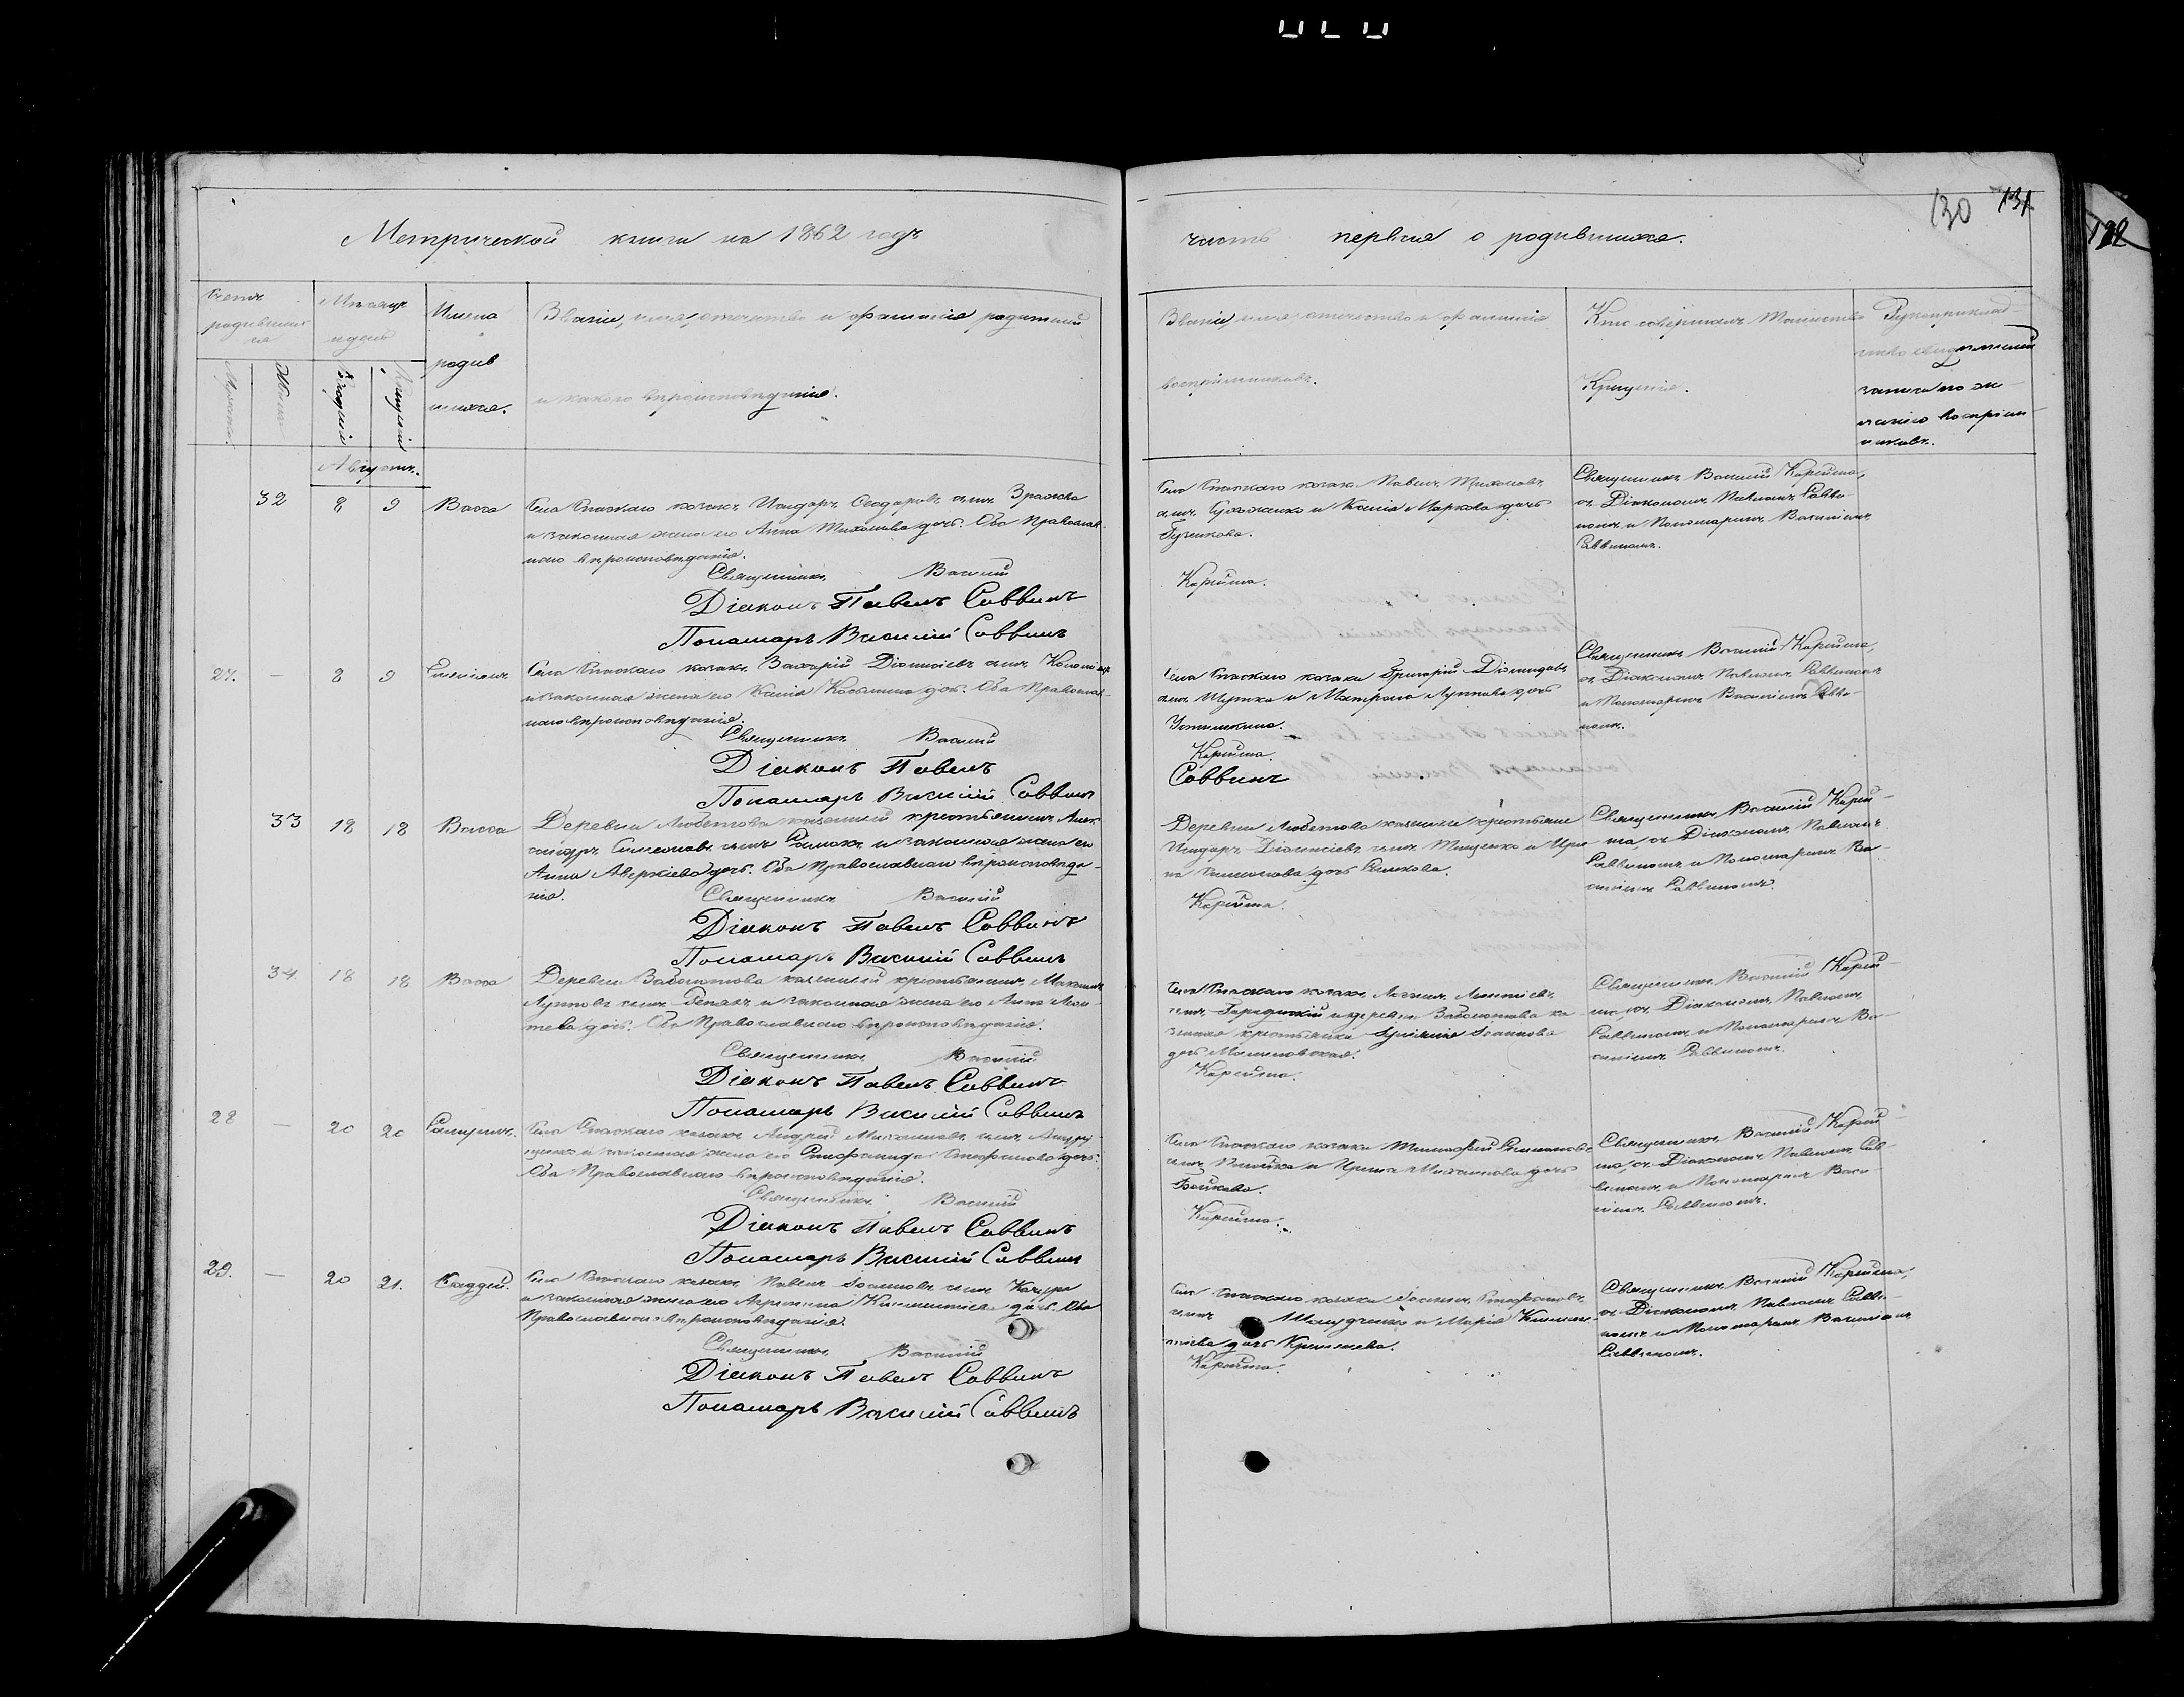 130 131
122
Метрической книги на 1862 годъ
часть первая о родившихся.
Счетъ
родивших
ся
Мужеска
Женска
Мѣсяцъ
и день
Рожденія
Крещенія
Имена
родив
шихся.
Званіе, имя, отчество и фамилія родителей
и какого вѣроисповѣданія.
Званіе, имя, отчество и фамилія
воспріемниковъ.
Кто совершалъ Таинство
Крещенія.
Рукоприклад-
ство свидѣтелей
записи по же-
ланію воспріем-
никовъ.
Августъ.
32 8 9 Васса
Села Спаскаго козакъ Исидоръ Ѳеодоровъ сынъ
и законная жена его Анна Тихонова дочь. Оба Православ-
наго вѣроисповѣданія.
Священникъ Василій
Діаконъ Павелъ Саввинъ
Понамарь Василій Саввинъ
Села Спаскаго козакъ Павелъ Тихоновъ
сынъ и Ксенія Маркова дочь
Карпита.
Священникъ Василій Карпита,
съ Діакономъ Павломъ Савви-
номъ и Пономаремъ Василіемъ
Саввиномъ.
27. — 8 9
Села Спаскаго козакъ Захарій Діонисіевъ сынъ
и законная жена его Ксенія дочь. Оба Православ-
наго вѣроисповѣданія.
Священникъ Василій
Діаконъ Павелъ
Понамарь Василій Саввинъ
Села Спаскаго козаки Григорій Діомидовъ
сынъ Шутка и Матрона Луппова дочь
Карпита.
Саввинъ
Священникъ Василій Карпита,
съ Діакономъ Павломъ Саввиномъ
и Пономаремъ Василіемъ Савви-
номъ.
33 18 18 Васса
Деревни Любитова казенный крестьянинъ Алек-
сандръ Симеоновъ сынъ и законная жена его
Анна Аверкіева дочь. Оба Православнаго вѣроисповѣда-
нія.
Священникъ Василій
Діаконъ Павелъ Саввинъ
Понамарь Василій Саввинъ
Деревни Любитова казенные крестьяне
Исидоръ Діонисіевъ сынъ Тищенко и Ири-
на Симеонова дочь
Карпита.
Священникъ Василій Карпи-
та, съ Діакономъ Павломъ
Саввиномъ и Пономаремъ Ва-
силіемъ Саввиномъ.
34 18 18 Васса
Деревни Заболотова казенный крестьянинъ Максимъ
Лупповъ сынъ и законная жена его Анна
дочь. Оба Православнаго вѣроисповѣданія.
Священникъ Василій
Діаконъ Павелъ Саввинъ
Понамарь Василій Саввинъ
Села Спаскаго козакъ
сынъ и деревни Заболотова ка-
зенная крестьянка Іоаннова
дочь
Карпита.
Священникъ Василій Карпи-
та, съ Діакономъ Павломъ
Саввиномъ и Пономаремъ Ва-
силіемъ Саввиномъ.
28 — 20 20
Села Спаскаго козакъ Андрей сынъ
и законная жена его Стефанида Стефанова дочь.
Оба Православнаго вѣроисповѣданія.
Священникъ Василій
Діаконъ Павелъ Саввинъ
Понамарь Василій Саввинъ
Села Спаскаго козаки Тимофей
сынъ и Ирина дочь
Бойкова.
Карпита.
Священникъ Василій Карпи-
та, съ Діакономъ Павломъ Сав-
виномъ и Пономаремъ Васи-
ліемъ Саввиномъ.
29. — 20 21. Ѳаддей.
Села Спаскаго козакъ Павелъ Іоанновъ сынъ
и законная жена его Агрипина Климентіева дочь. Оба
Православнаго вѣроисповѣданія.
Священникъ Василій
Діаконъ Павелъ Саввинъ
Понамарь Василій Саввинъ
Села Спаскаго козаки Іоаннъ Стефановъ
сынъ и Марія Климен-
тіева дочь
Карпита.
Священникъ Василій Карпита,
съ Діакономъ Павломъ Савви-
номъ и Пономаремъ Василіемъ
Саввиномъ.